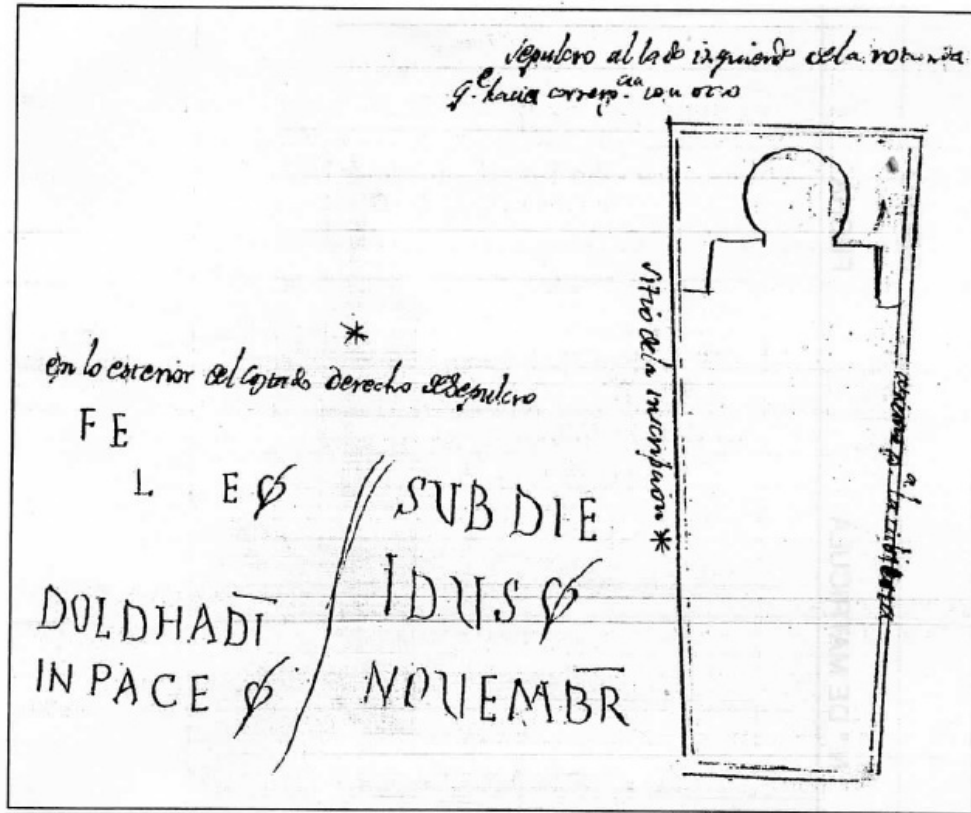 sepulcro al lado izquierdo de la rotunda
q.e hacia corresp.cia con otro
sitio de la inscripcion *
*
en lo exterior del costado derecho del sepulcro
FE
L E
DOLDHADI
IN PACE
SUB DIE
IDUS
NOVEMBR
N.° DE MATRICULA